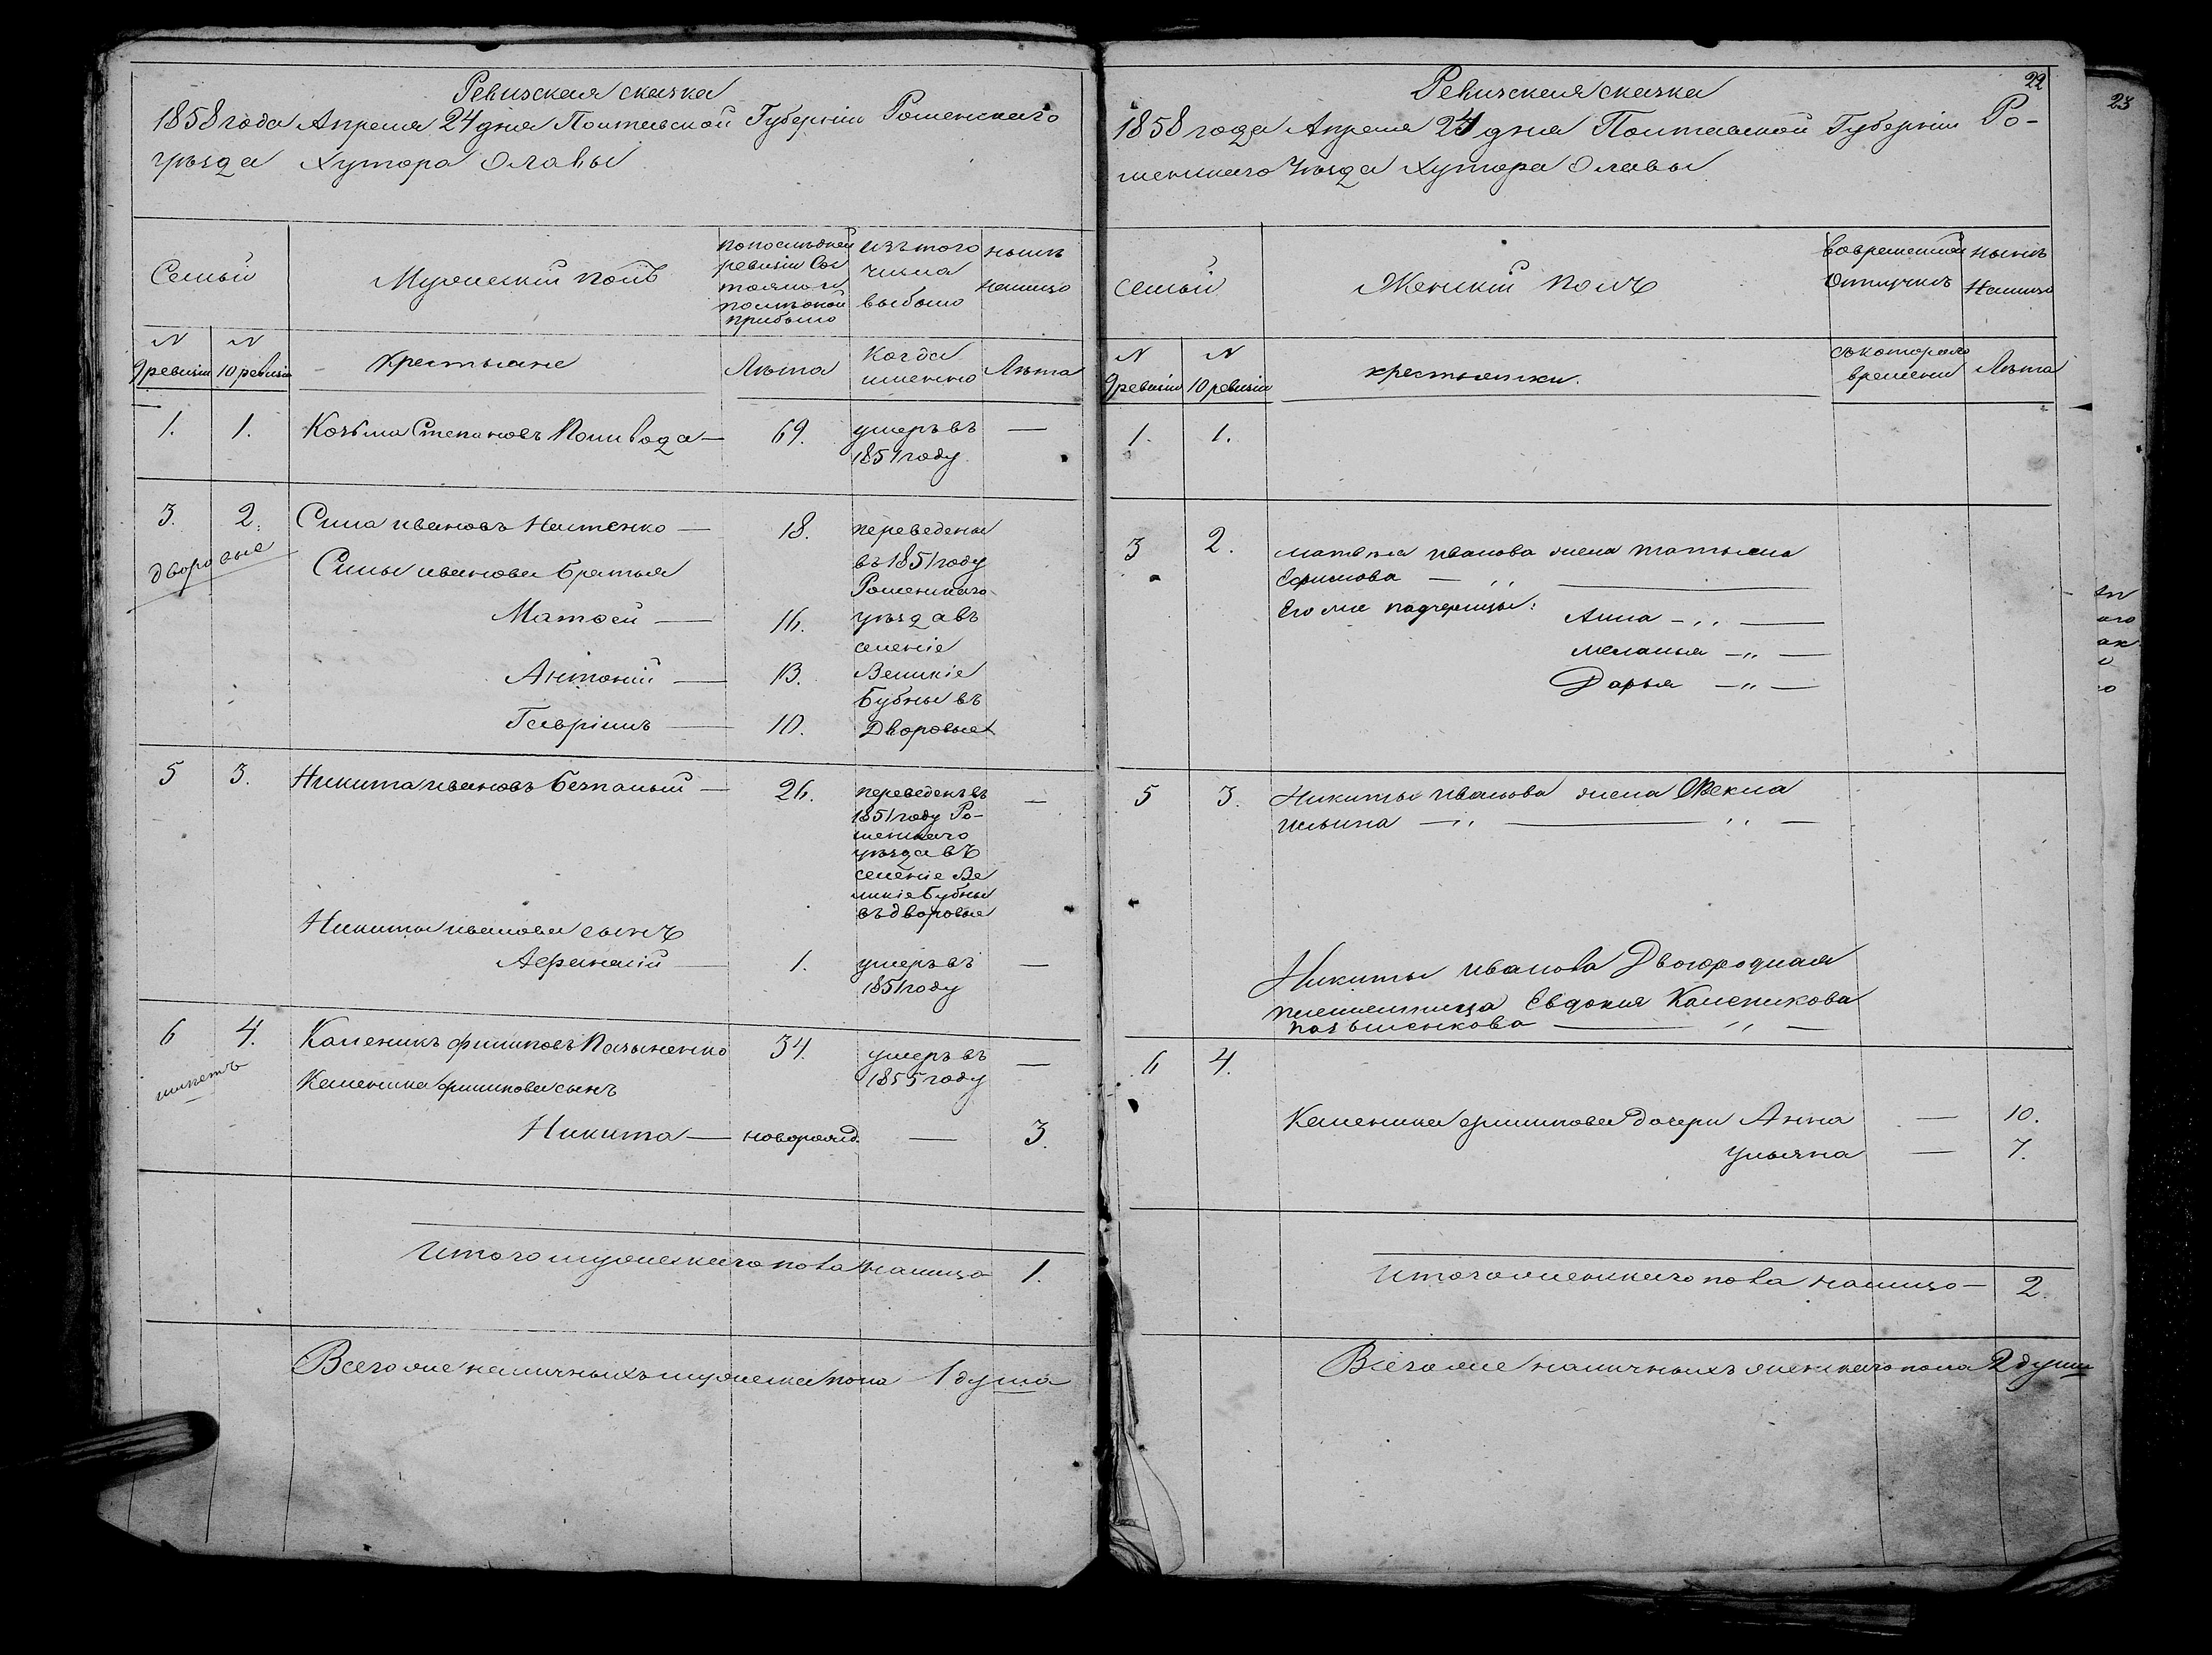 Ревизская сказка
1858 года Апреля 24 дня Полтавской Губерніи Роменскаго
уѣзда Хутора Олавы
Семьи
Мужескій полъ
по последней
ревизіи Сос
тояло и
после оной
прибыло
изъ того
числа
выбыло
нынѣ
налицо
N
9 ревизіи
N
10 ревизіи
Крестьяне
Лѣта
Когда
именно
Лѣта
1. 1. Козьма Степановъ Поливода — 69. умеръ въ —
1851 году
3. 2. Сила Ивановъ Нестенко — 18. переведены
дворовые
Силы Иванова братья
въ 1851 году
Роменскаго
Матвей — 16. уѣзда въ
селеніе
Антоній — 13. Великіе
Бубны въ
Гавріилъ — 10. Дворовые
5 3. Никита Ивановъ Безпалый — 26. переведенъ въ —
1851 году Ро-
менскаго
уѣзда въ
селеніе Ве
ликіе Бубны
въ дворовые
Никиты Иванова сынъ
Афанасій — 1. умеръ въ —
1851 году
6 4. Каленикъ Филиповъ Позыненко 34. умеръ въ —
1855 году
Каленика Филипова сынъ
Никита — новорожд. — 3.
Итого мужескаго пола налицо 1.
Всего же наличныхъ мужеска пола 1 душа
22
Ревизская сказка
1858 года Апреля 24 дня Полтавской Губерніи Ро-
менскаго Уѣзда Хутора Олавы
Семьи
Женскій полъ
во временной
Отлучкѣ
нынѣ
Налицо
N
9 ревизіи
N
10 ревизіи
крестьянки.
съ котораго
времени
Лѣта
1. 1.
3 2. Матвея Иванова жена Татьяна
Ефимова — " —
Его же падчерицы: Анна — " —
Меланья — " —
Дарья — " —
5 3. Никиты Иванова жена Фекла
Ильина — " — " —
Никиты Иванова Двоюродная
племенница Евдокия Каленикова
— " —
6 4.
Каленика Филипова дочери Анна — 10.
Ульяна — 7.
Итого женскаго пола налицо — 2.
Всего же наличныхъ женскаго пола 2 души
23